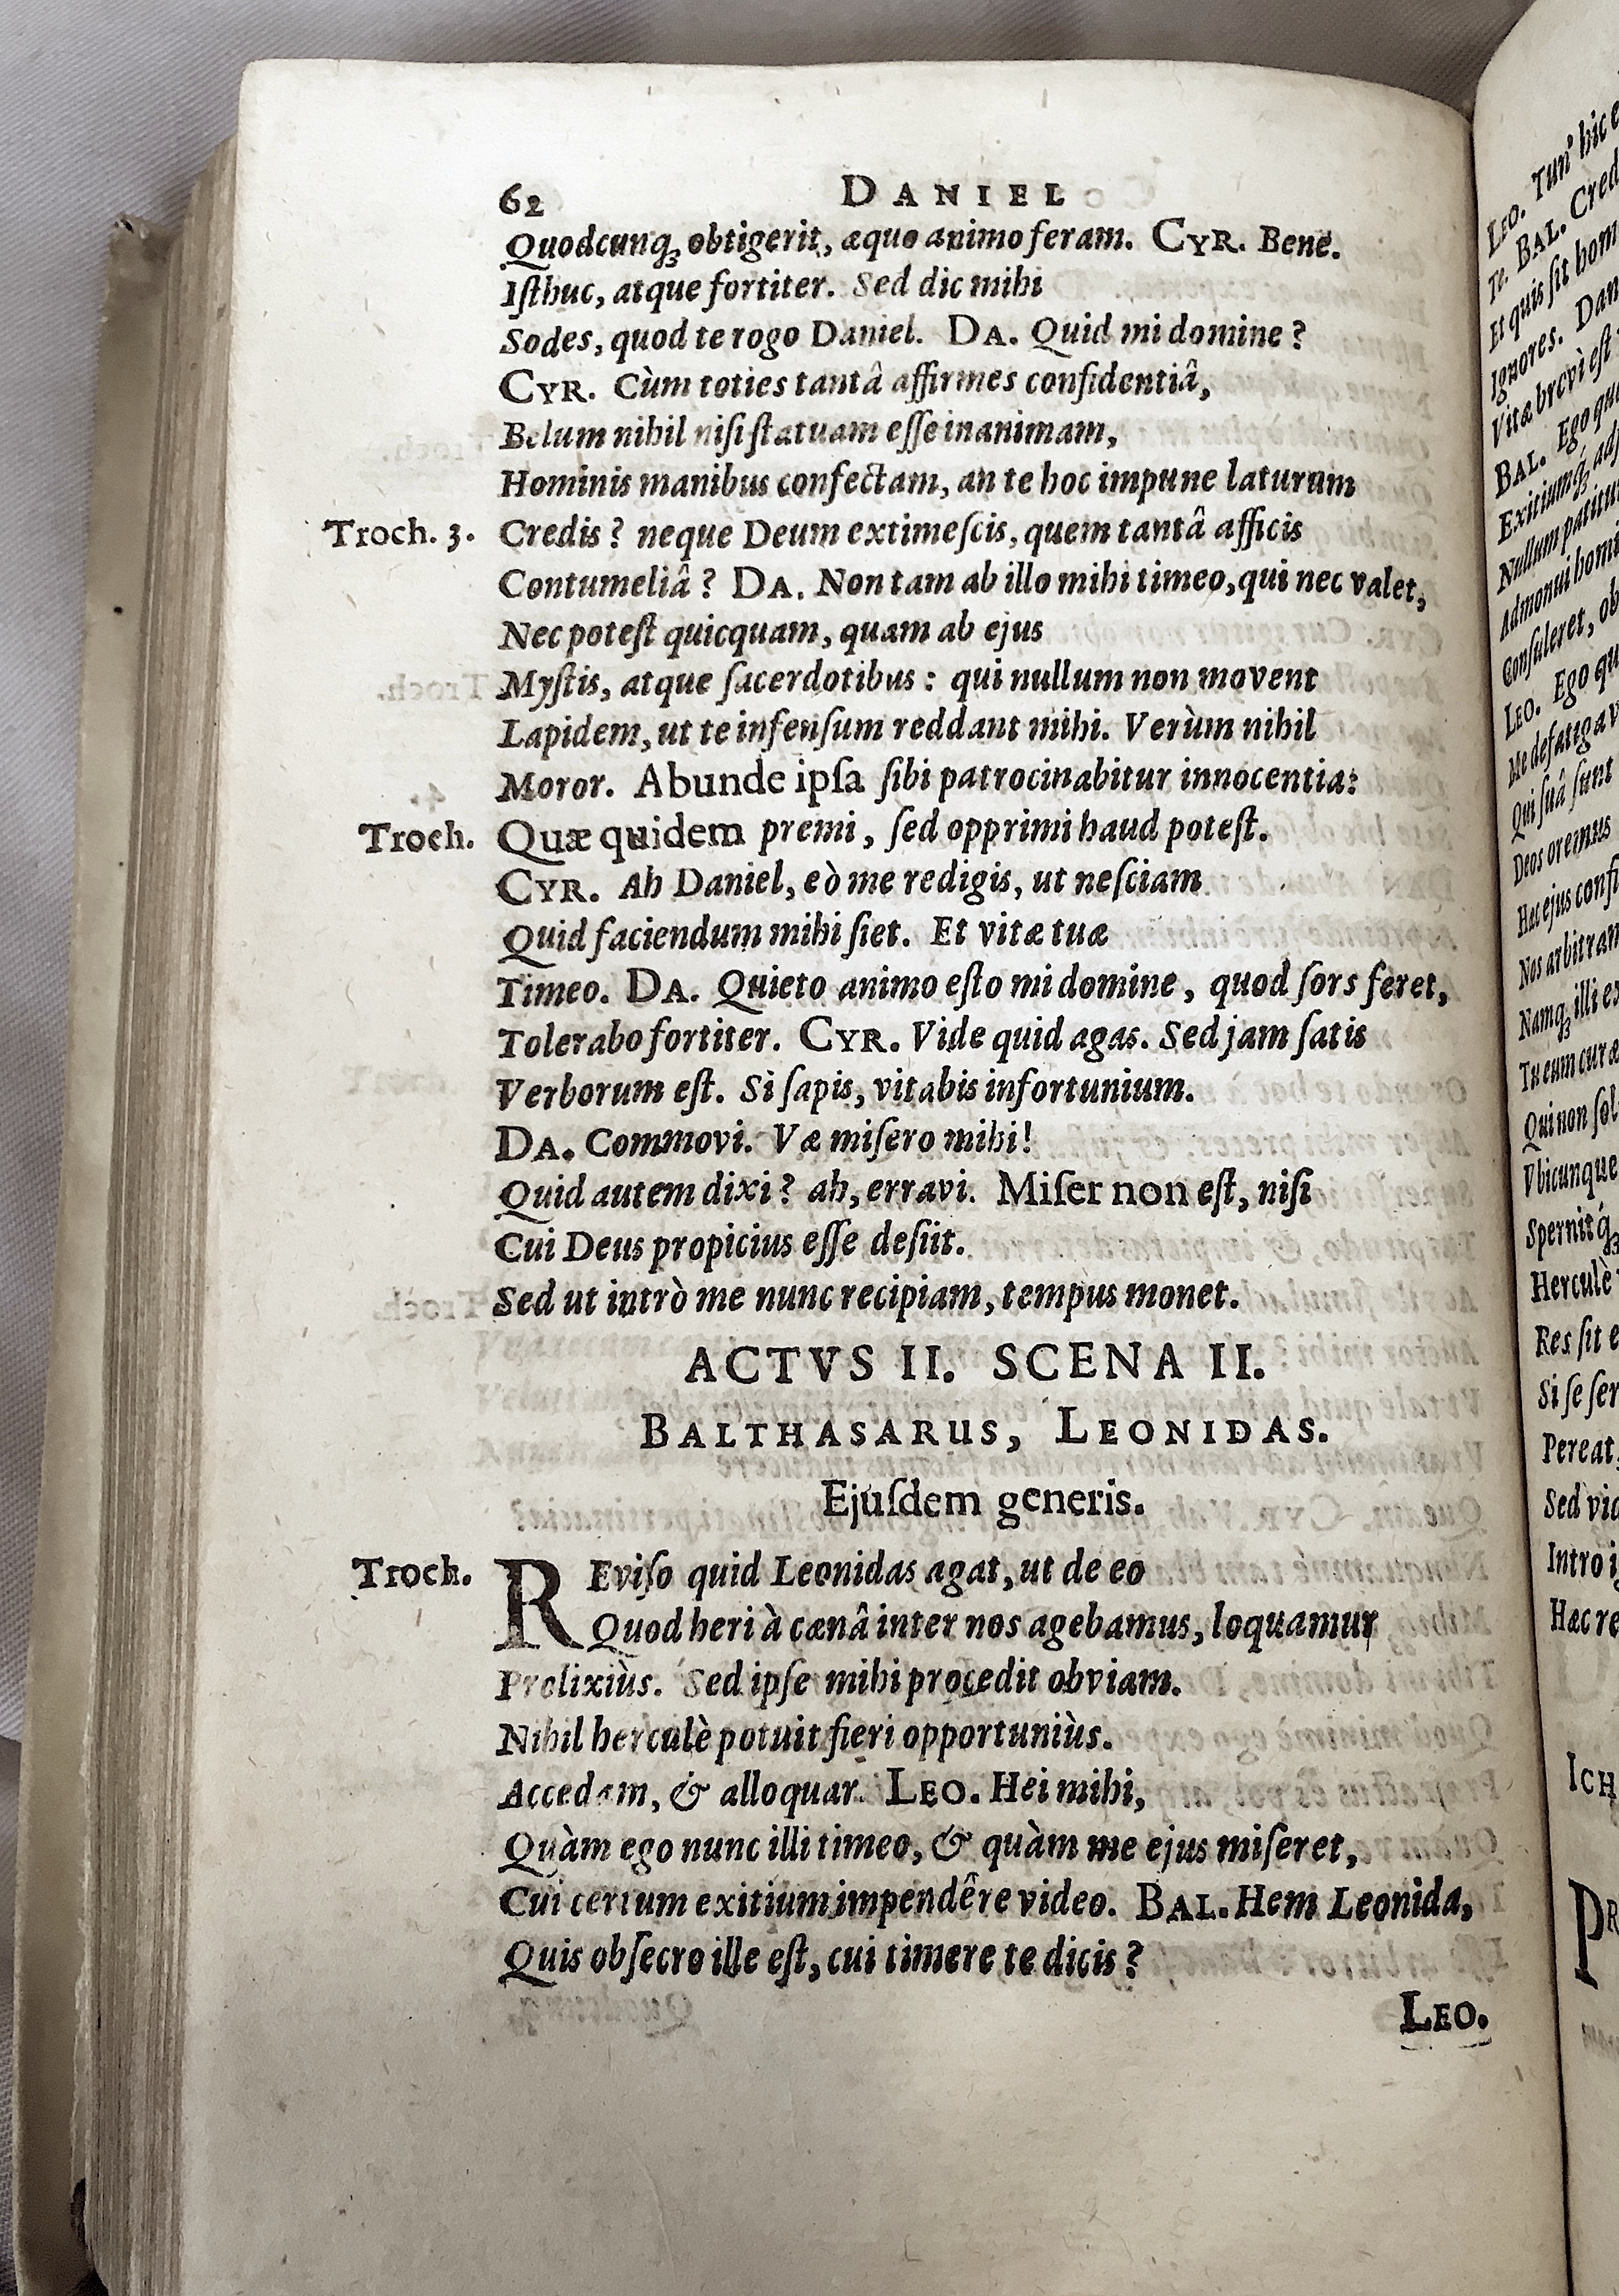 62 DANIEL
Quodcunq; obtigerit, æquo animo feram. CYR. Bene.
Iſthuc, atque fortiter. Sed dic mihi
Sodes, quod te rogo Daniel. DA. Quid mi domine?
CYR. Cùm toties tantâ affirmes confidentiâ,
Belum nihil niſi ſtatuam eſſe inanimam,
Hominis manibus confectam, an te hoc impune laturum
Troch. 3. Credis? neque Deum extimeſcis, quem tantâ afficis
Contumeliâ? DA. Non tam ab illo mihi timeo, qui nec valet,
Nec poteſt quicquam, quam ab ejus
Myſtis, atque ſacerdotibus: qui nullum non movent
Lapidem, ut te infenſum reddant mihi. Verùm nihil
Moror. Abunde ipſa ſibi patrocinabitur innocentia:
Troch. Quæ quidem premi, ſed opprimi haud poteſt.
CYR. Ah Daniel, eò me redigis, ut neſciam
Quid faciendum mihi ſiet. Et vitæ tuæ
Timeo. DA. Quieto animo eſto mi domine, quod ſors feret,
Tolerabo fortiter. CYR. Vide quid agas. Sed jam ſatis
Verborum eſt. Si ſapis, vitabis infortunium.
DA. Commovi. Væ miſero mihi!
Quid autem dixi? ah, erravi. Miſer non eſt, niſi
Cui Deus propicius eſſe deſiit.
Sed ut intrò me nunc recipiam, tempus monet.
ACTVS II. SCENA II.
BALTHASARUS, LEONIDAS.
Ejuſdem generis.
Troch. REviſo quid Leonidas agat, ut de eo
Quod heri à cænâ inter nos agebamus, loquamur
Prolixiùs. Sed ipſe mihi procedit obviam.
Nihil herculè potuit fieri opportuniùs.
Accedam, & alloquar. LEO. Hei mihi,
Quàm ego nunc illi timeo, & quàm me ejus miſeret,
Cui certum exitium impendêre video. BAL. Hem Leonida,
Quis obſecro ille eſt, cui timere te dicis?
LEO.
LEO. Tun' hic
Te. BAL. Cred
Et quis ſit hom
Ignores. Dan
Vitæ brevì eſt
BAL. Ego qu
Exitiumq; ad
Nullum patitu
Admonui hom
Conſuleret, ob
LEO. Ego qu
Me defatigav
Qui ſuâ ſunt
Deos oremus
Hæc ejus conf
Nos arbitran
Namq; illi ex
Tu eum curæ
Qui non ſol
Vbicunque
Spernitq́;
Herculè
Res ſit e
Si ſe ſer
Pereat,
Sed vid
Intro i
Hæc re
ICH
PR